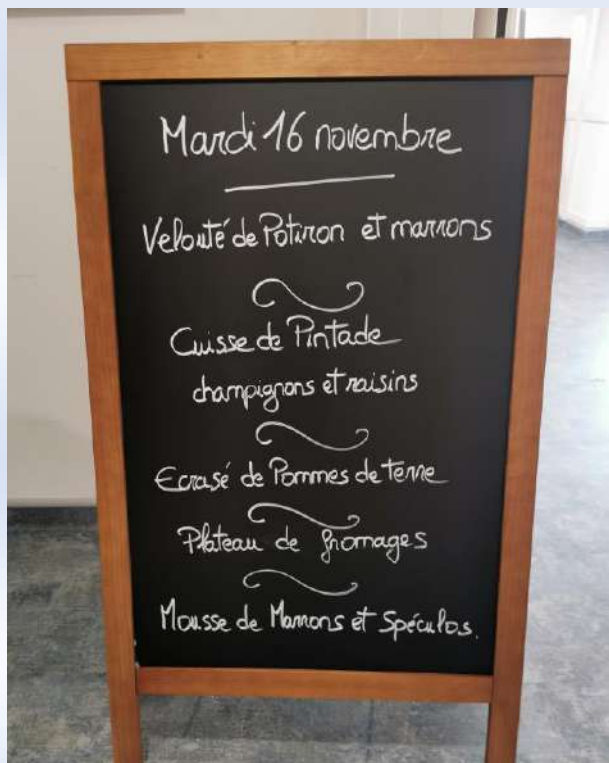 Mardi 16 novembre
Velouté de Potiron et marrons
Cuisse de Pintade
champignons et raisins
Ecrasé de Pommes de terre
Plateau de fromages
Mousse de Marrons et Spéculos.